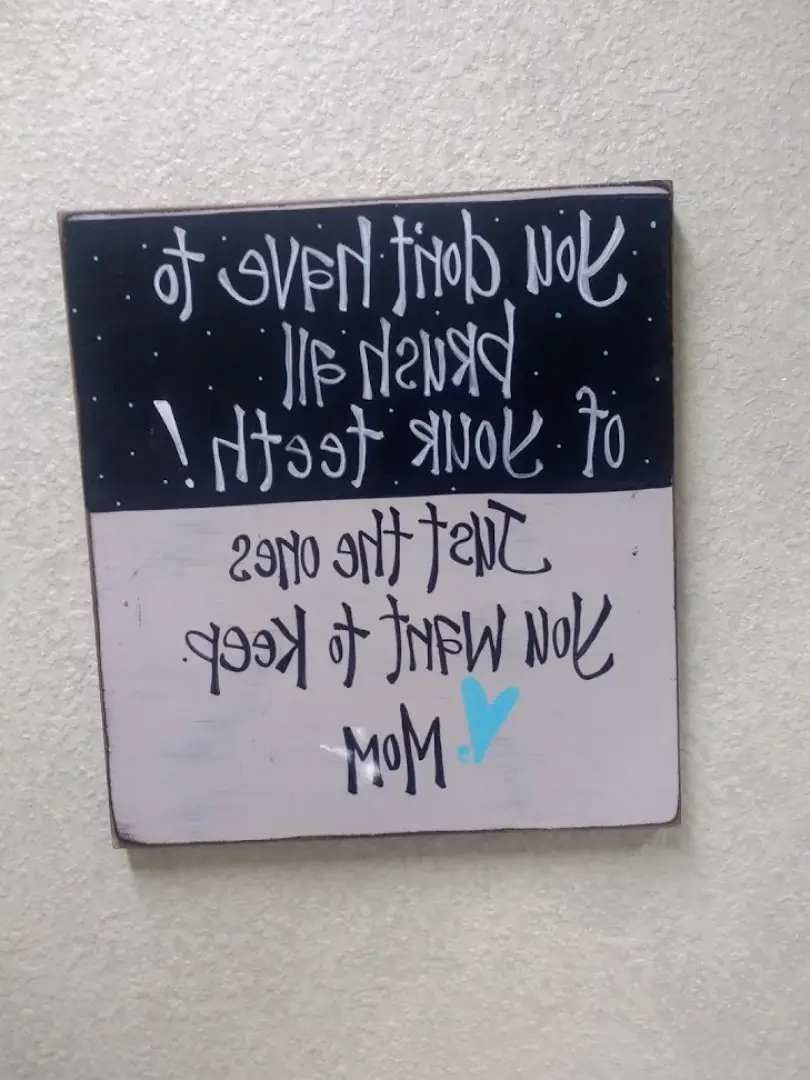 You don't have to
brush all
of your teeth!
Just the ones
you want to keep.
Mom